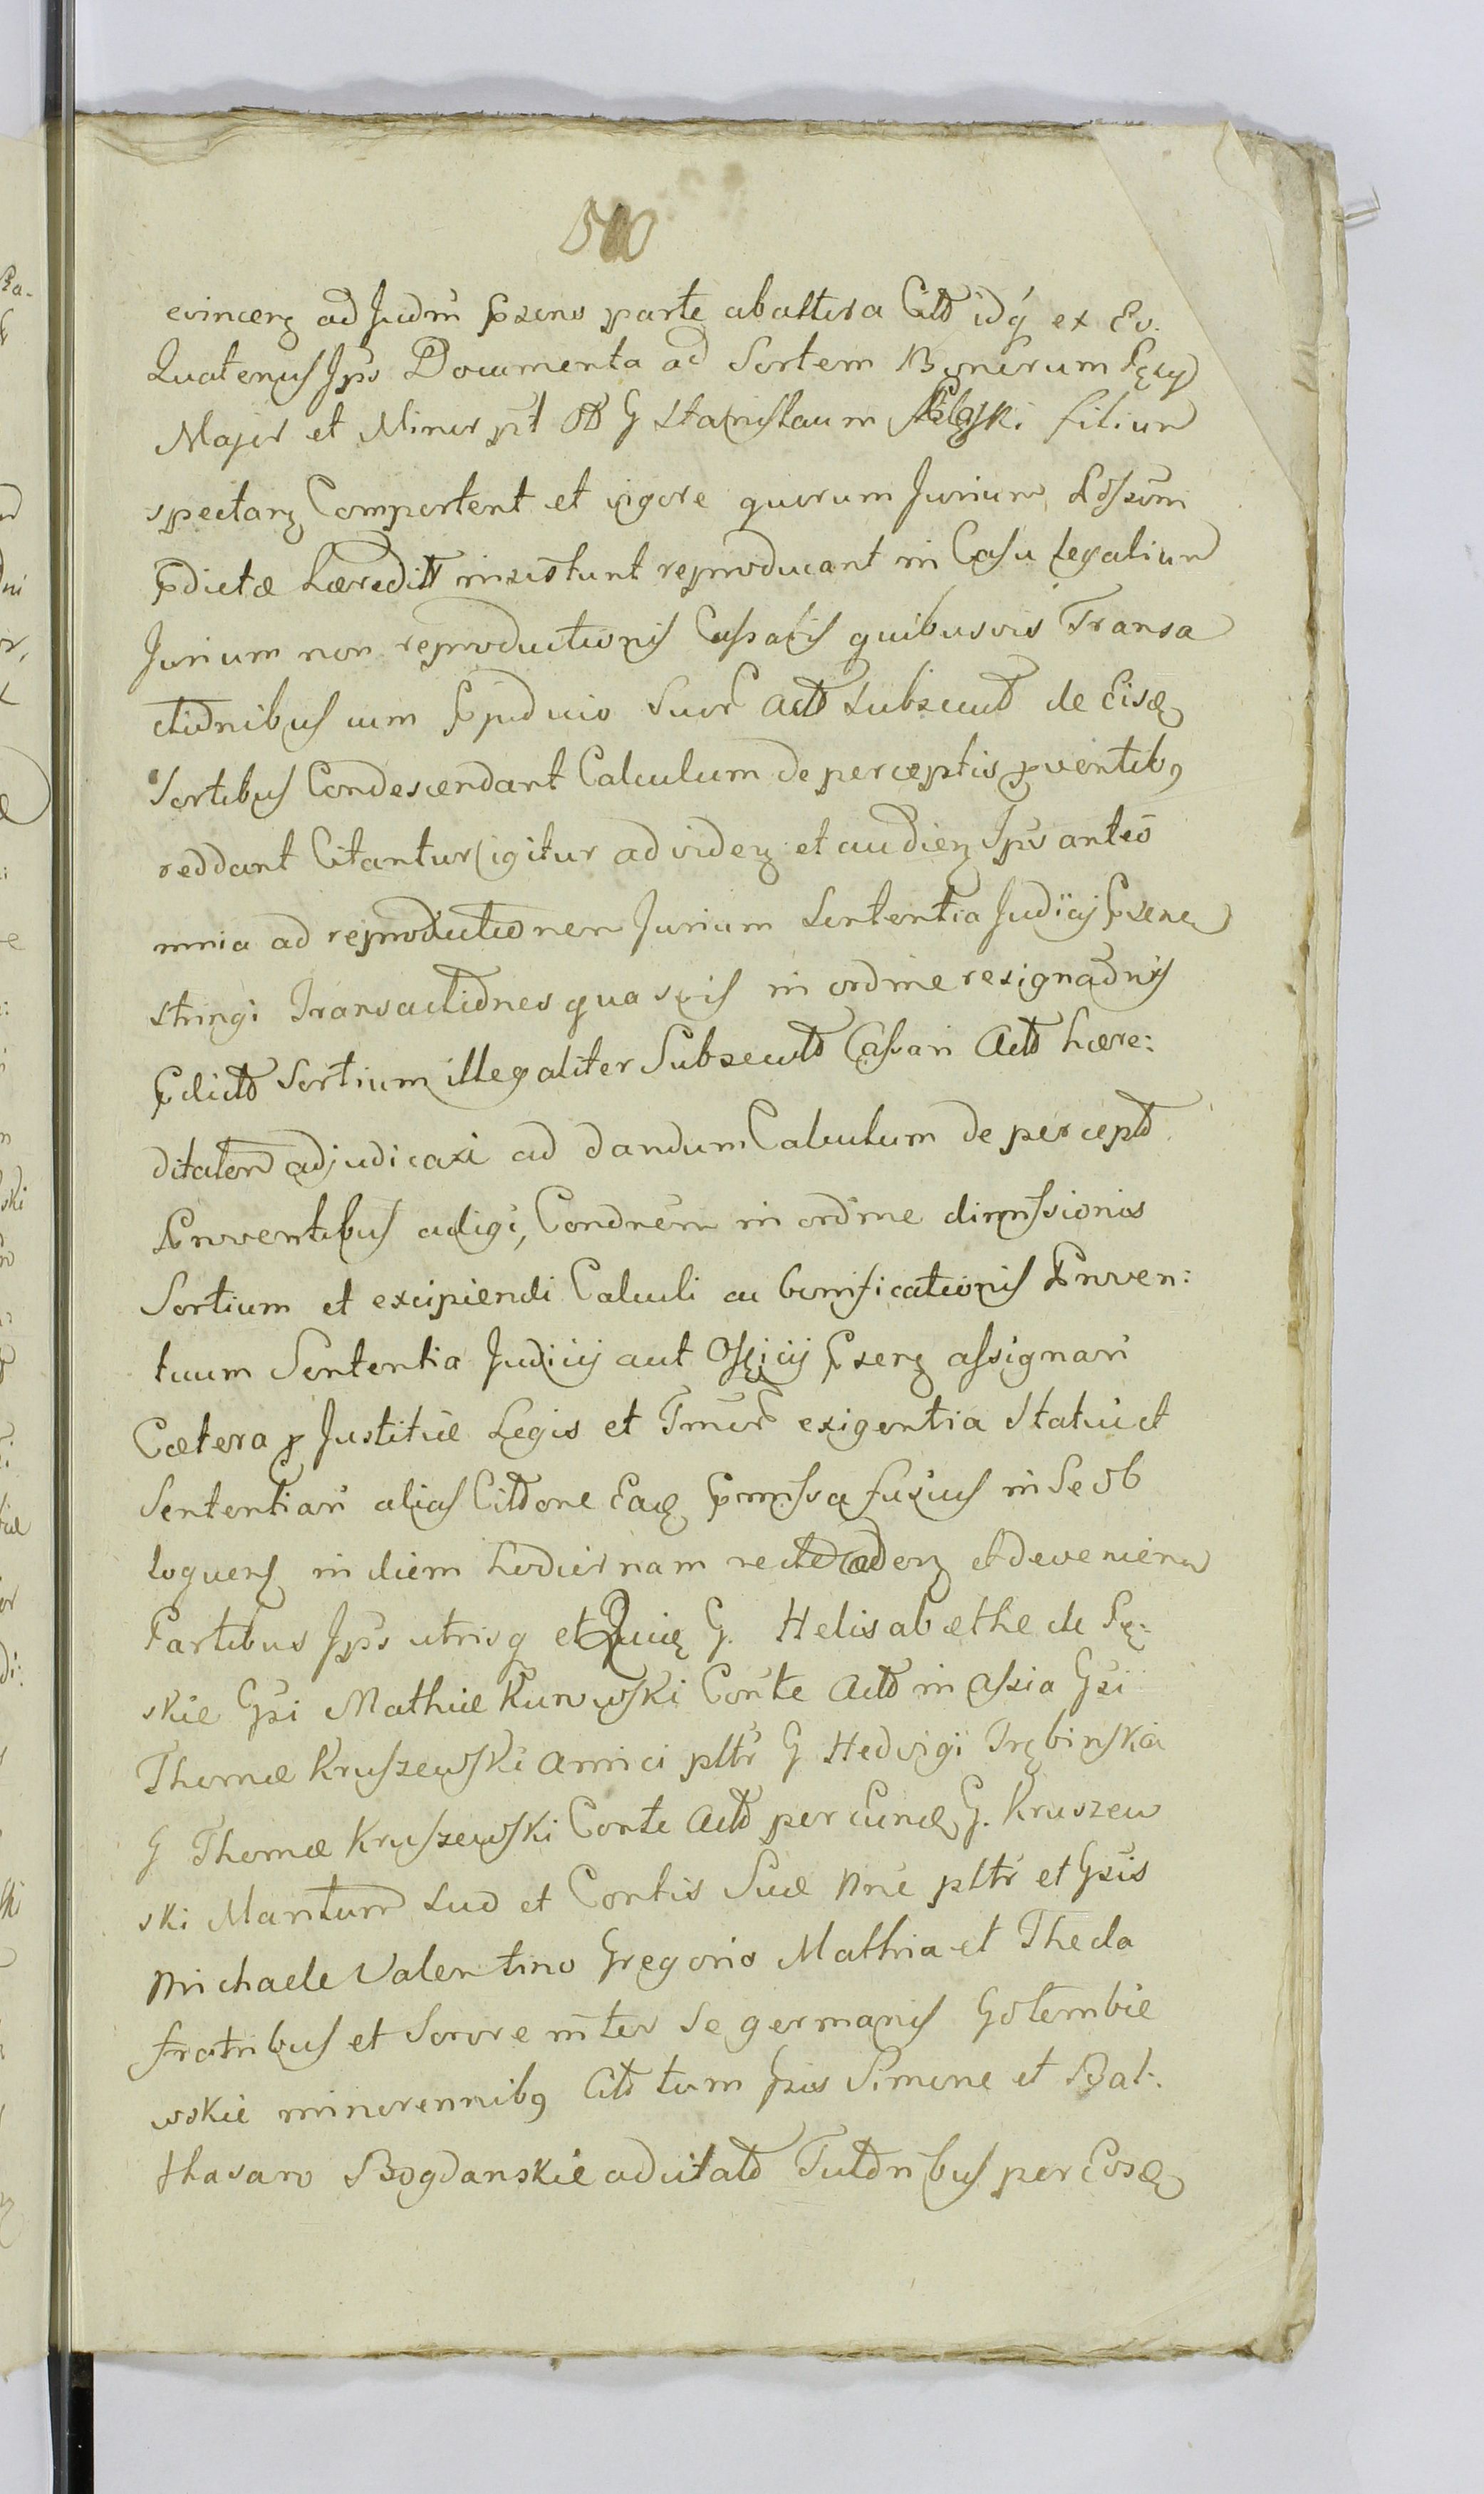 510
evincen ad Judm Pzens parte ab altera Citt idq ex Eo.
Quatenus Jps Documenta ad Sortem Bonorum Sęcy
Major et Minor pt G Stanislaum filium
spectan Comportent et vigore quorum Jurium
Pdictæ hæreditt insistunt reproducant in Casu legalium
Jurium non reproductionis Cassatis quibusvis Transa
ctionibus cum Ppudicio Suor Actt Subsecut de Eisd
Sortibus Condescendant Calculum de perceptis pventibq
reddant Citantur igitur ad viden et audien Jps anteo
mnia ad reproductionem Jurium Sententia Judicij Pzen
stringi Transactiones quasvis in ordine resignaonis
Pdictt Sortium illegaliter Subsecutt Cassari Actt hære:
ditatem adjudicari ad dandum Calculum de percept
Proventibus adigi, Condnem in ordine dimissionis
Sortium et excipiendi Calculi ac bonificationis Proven:
tuum Sententia Judicij aut Officij Pzen assignari
Cætera p Justitiæ Legis et Tmor exigentia Statui et
Sententiari alias Cittone Ead Pmissa fusius in Se ob
loquens in diem hodiernam recte caden et devenien
Partibus Jps utrisq et G. Helisabethe de Sę:
skie Gsi Mathiæ Kurowski Conte Actt in assia Gsi
Thomæ Kruszewski amici pltr G Hedvigi Trębinska
G Thomæ Kruszewski Conte Actt per Eund G. Kruszew
ski Maritum Suo et Contis Suæ Nne pltr et Gsis
Michaele Valentino Gregorio Mathia et Thecla
fratribus et Sorore inter se germanis Gołembie
wskie minorennibq Citt tum Gsis Simone et Bal:
thasaro Bogdanskie adcitatt Tutoribus per Eosd